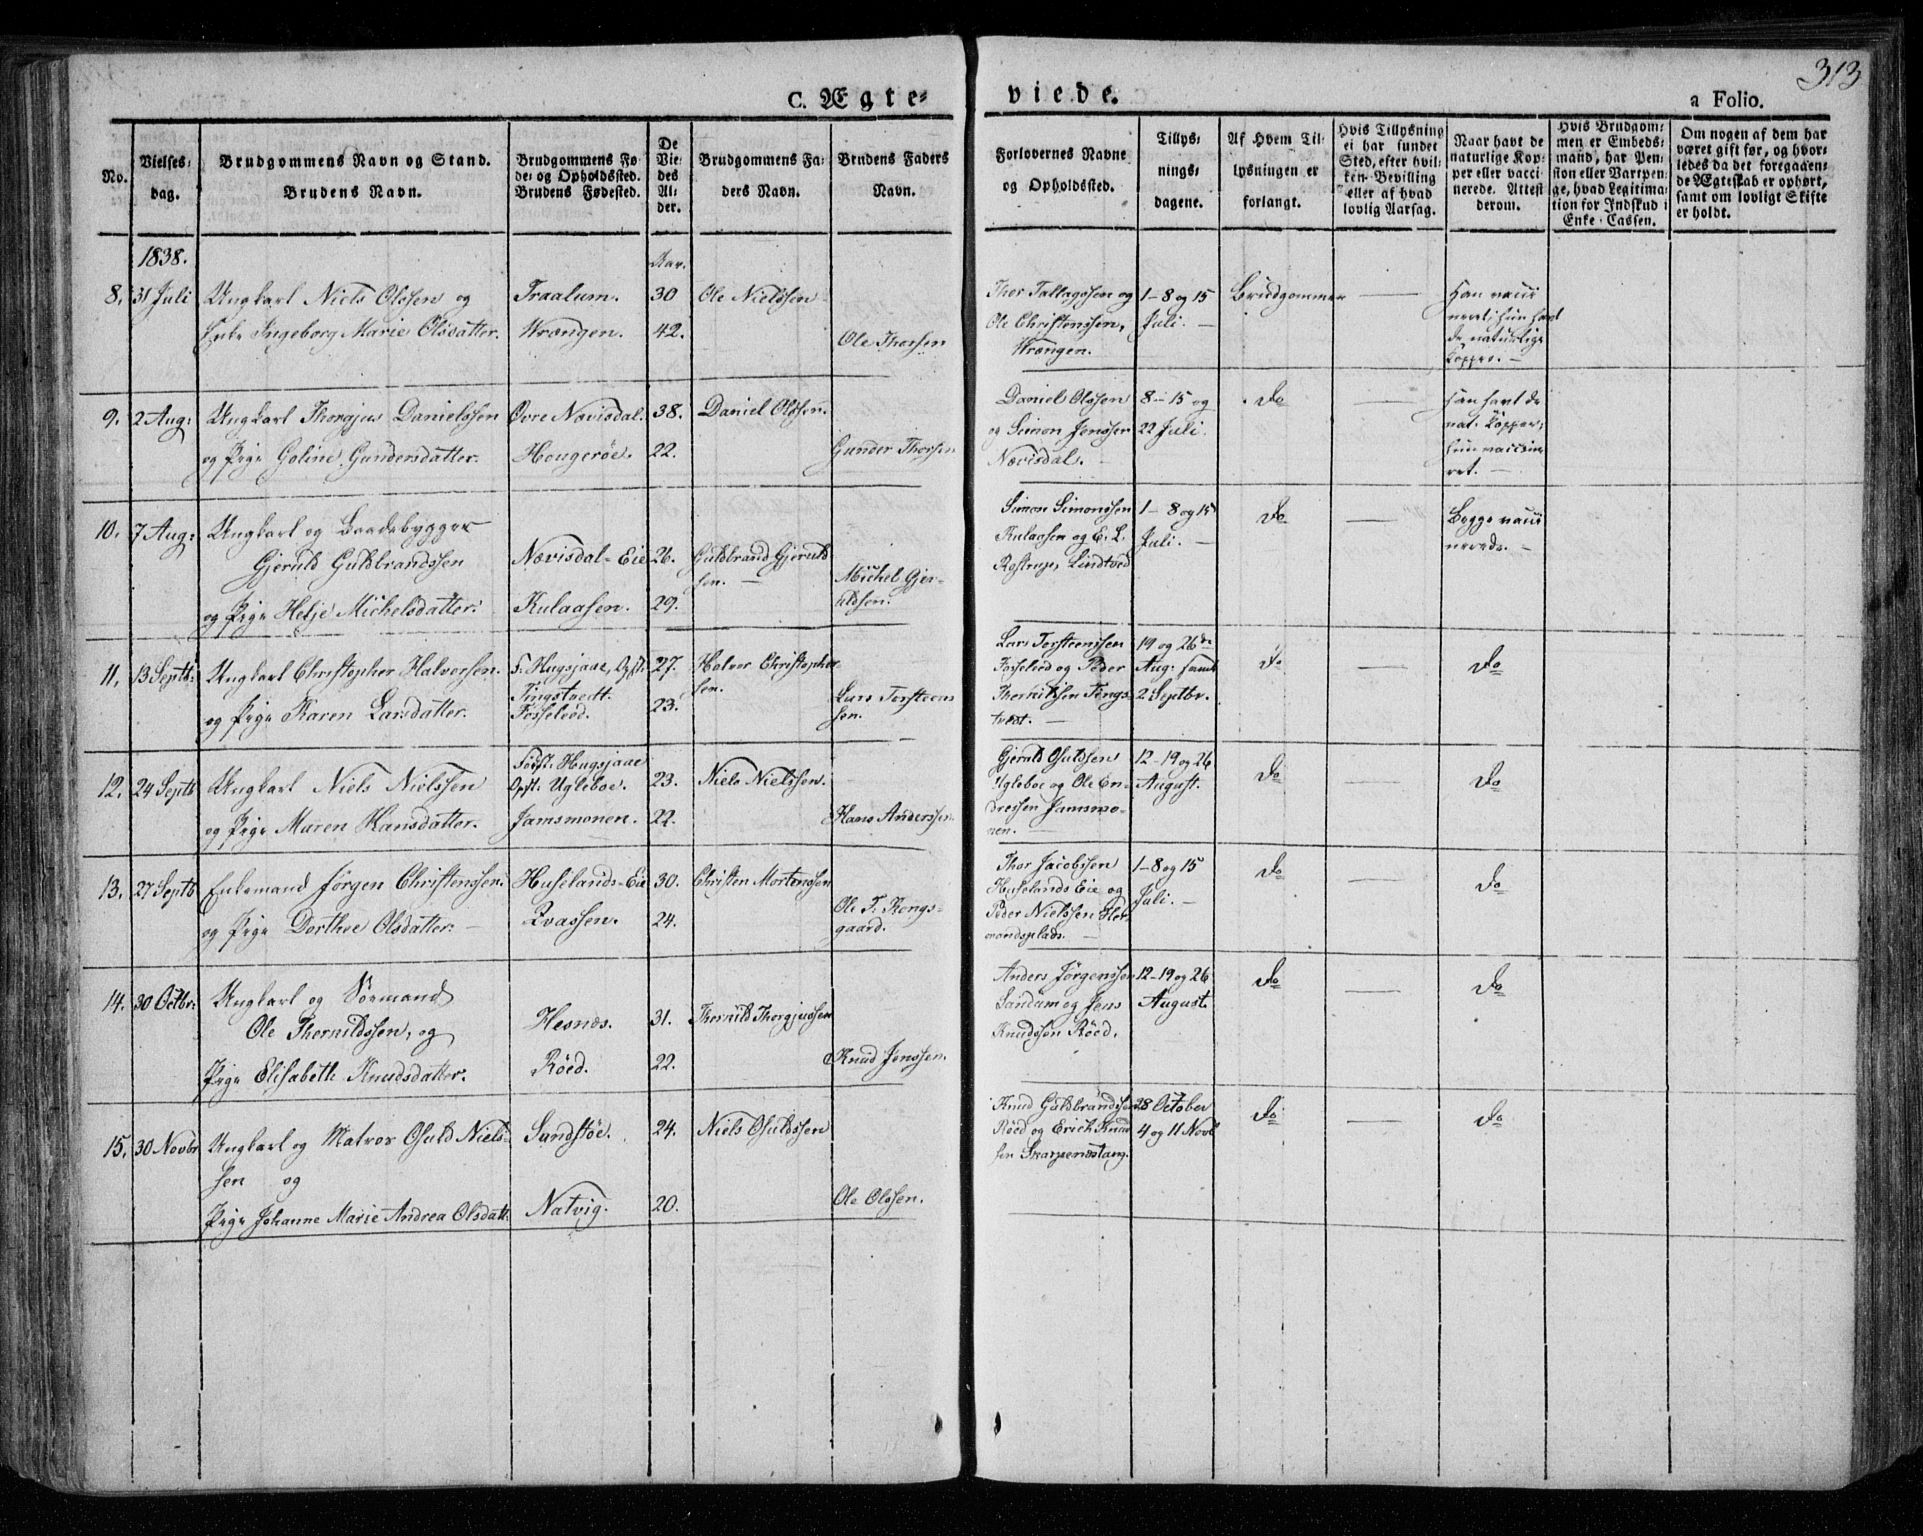 313
C. Ægte-
viede.
a Folio.
No.
Vielses-
dag.
Brudgommens Navn og Stand.
Brudens Navn.
Brudgommens Fø-
de- og Opholdssted.
Brudens Fødested.
De
Vie-
des
Al-
der.
Brudgommens Fa-
ders Navn.
Brudens Faders
Navn.
Forlovernes Navne
og Opholdssted.
Tillys-
nings-
dagene.
Af Hvem Til-
lysningen er
forlangt.
Hvis Tillysning
ei har fundet
Sted, efter hvil-
ken Bevilling
eller af hvad
lovlig Aarsag.
Naar havt de
naturlige Kop-
per eller vacci-
nerede. Attest
derom.
Hvis Brudgom-
men er Embeds-
mand, har Pen-
sion eller Vartpen-
ge, hvad Legitima-
tion for Indskud i
Enke-Cassen.
Om nogen af dem har
været gift før, og hvor-
ledes da det foregaaen-
de Ægteskab er ophørt,
samt om lovligt Skifte
er holdt.
1838.
Aar.
8. 31 Juli
Ungkarl Niels Olssen og
Enke Ingeborg Marie Olsdatter.
Traalum.
Wrængen.
30
42.
Ole Nielssen
Ole Thorsen
Thor Tallagssen og
Ole Christenssen,
Wrængen.
1-8 og 15
Juli. —
Brudgommen
—
Han vacci
neret; hun havt
de naturlige
Kopper. —
9. 2 Aug:
Ungkarl Thorgjus Danielssen
og Pige Goline Gundersdatter.
Øvre Nævisdal.
Hougerøe.
38.
22.
Daniel Olssen.
Gunder Thorsen
Daniel Olssen
og Simon Jenssen
Nævisdal. —
8-15 og
22 Juli.
Do
—
han havt de
nat. Kopper,
hun vaccine
ret. —
10. 7 Aug:
Ungkarl og Baadebygger
Gjeruld Guldbrandssen
og Pige Helje Michelsdatter.
Nævisdal-Eie
Kulaasen.
26.
29.
Guldbrand Gjeruld
sen. —
Michel Gjer-
uldsen.
Simon Simonssen
Kulaasen og E. L.
Rostrup, Lindtved
1-8 og 15
Juli. —
Do
—
Begge vacci
nerede. —
11. 13 Septb:
Ungkarl Christopher Halvorsen.
og Pige Karen Larsdatter.
F. Hugsjaae, Opst:
Tingstvedt.
Fosselod.
27.
23.
Halvor Christopher
sen.
Lars Torsteens
sen.
Lars Torsteenssen
Fosselod og Peder
Thernildsen Tings-
tvedt. —
19 og 26de
Aug: samt
2 Septbr.
Do
—
Do
12. 24 Septb
Ungkarl Niels Nielssen
og Pige Maren Hansdatter.
Fødst. Hugsjaae
Opst: Ugleboe.
Jamsmonen.
23.
22.
Niels Nielssen.
Hans Anderssen.
Gjeruld Osuldsen
Ugleboe og Ole En-
dressen Jamsmo-
nen. —
12-19 og 26
August.
Do
—
Do
13. 27 Septb
Enkemand Jørgen Christenssen
og Pige Dorthee Olsdatter. —
Huselands-Eie
Qvassen.
30.
24.
Christen Mortenssen
Ole T. Kongs-
gaard.
Thor Jacobssen
Huselands Eie og
Peder Nielssen Her-
mandsplads. —
1-8 og 15
Juli. —
Do
—
Do
14. 30 Octbr:
Ungkarl og Sömand
Ole Thernildssen, og
Pige Elisabeth Knudsdatter.
Hesnæs.
Röed.
31.
22.
Thernild Thorgjussen
Knud Jenssen.
Anders Jørgenssen
Sandum og Jens
Knudssen Röed.
12-19 og 26
August.
Do
—
Do
15. 30 Novbr
Ungkarl og Matros Osuld Niels-
sen og
Pige Johanne Marie Andrea Olsdatt:
Sandstöe.
Natvig.
24.
20.
Niels Osuldssen
Ole Olssen.
Knud Guldbrandssen
Röed og Erich Knud
sen Skarpenæstang.
28 October
4 og 11 Novb
Do
—
Do